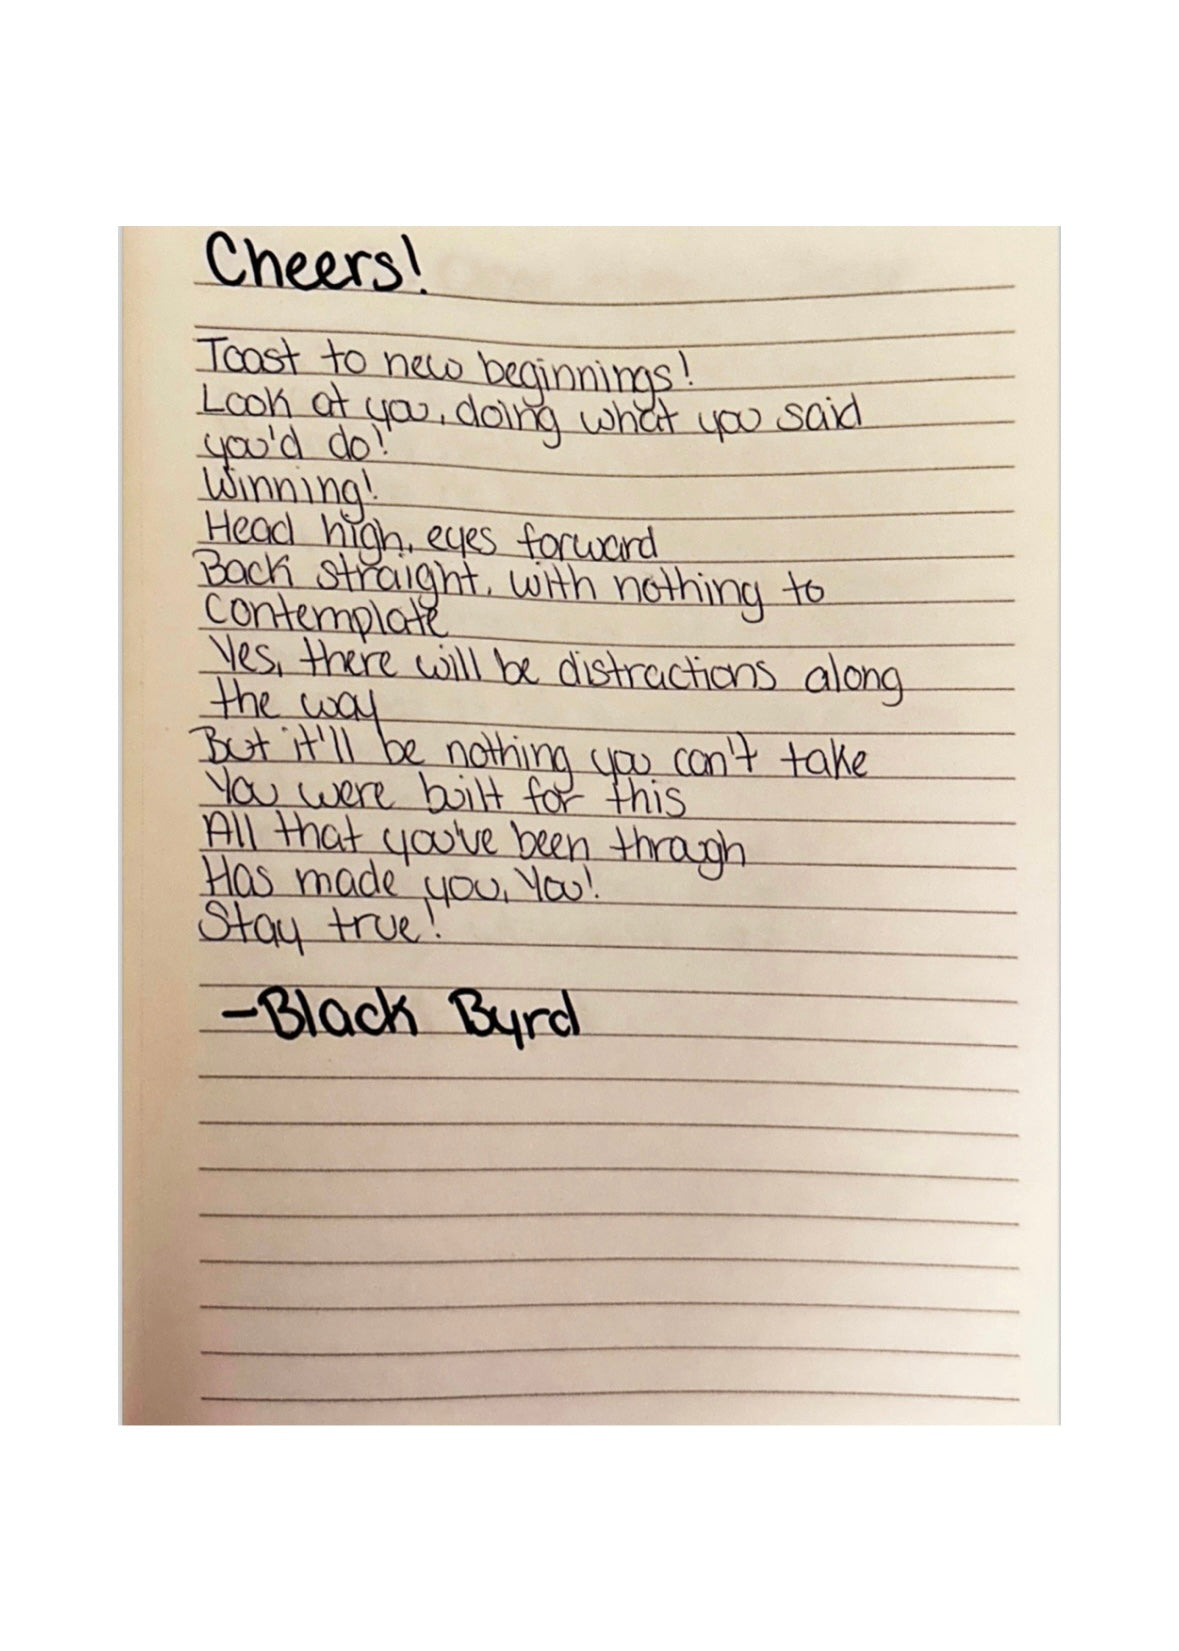 Cheers!
Toast to new beginnings!
Look at you, doing what you said
you'd do!
Winning!
Head high, eyes forward
Back straight, with nothing to
contemplate
Yes, there will be distractions along
the way
But it'll be nothing you can't take
You were built for this
All that you've been through
Has made you, You!
Stay true!
-Black Byrd